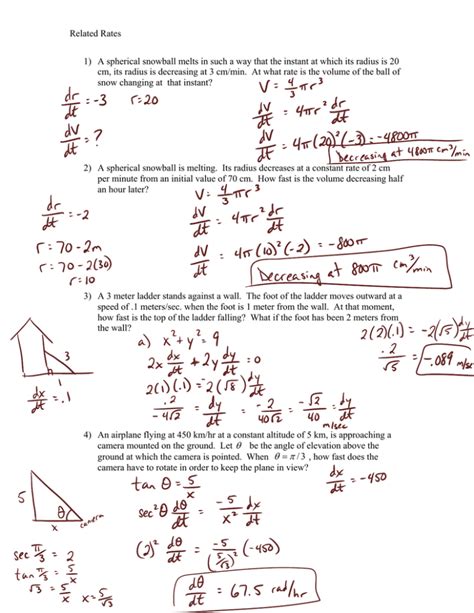 Related Rates
1) A spherical snowball melts in such a way that the instant at which its radius is 20
cm, its radius is decreasing at 3 cm/min. At what rate is the volume of the ball of
snow changing at that instant?
V = 4/3 πr³
dr/dt = -3 r = 20
dV/dt = 4πr² dr/dt
dV/dt = ?
dV/dt = 4π(20)²(-3) = -4800π
Decreasing at 4800π cm³/min
2) A spherical snowball is melting. Its radius decreases at a constant rate of 2 cm
per minute from an initial value of 70 cm. How fast is the volume decreasing half
an hour later?
V = 4/3 πr³
dr/dt = -2
dV/dt = 4πr² dr/dt
r = 70 - 2m
r = 70 - 2(30)
r = 10
dV/dt = 4π(10)²(-2) = -800π
Decreasing at 800π cm³/min
3) A 3 meter ladder stands against a wall. The foot of the ladder moves outward at a
speed of .1 meters/sec. when the foot is 1 meter from the wall. At that moment,
how fast is the top of the ladder falling? What if the foot has been 2 meters from
the wall?
a) x² + y² = 9
2x dx/dt + 2y dy/dt = 0
2(1)(.1) = -2(√8) dy/dt
.2/-4√2 = dy/dt
-2/40√2 = -√2/40 = dy/dt
m/sec
2(2)(.1) = -2(√5) dy/dt
.2/√5 = -.089 m/sec
3
1
dx/dt = .1
4) An airplane flying at 450 km/hr at a constant altitude of 5 km, is approaching a
camera mounted on the ground. Let θ be the angle of elevation above the
ground at which the camera is pointed. When θ = π/3, how fast does the
camera have to rotate in order to keep the plane in view?
tan θ = 5/x
dx/dt = -450
sec²θ dθ/dt = -5/x² dx/dt
5
θ
x
camera
(2)² dθ/dt = -5/(5/√3)² (-450)
sec π/3 = 2
tan π/3 = 5/x
√3 = 5/x x = 5/√3
dθ/dt = 67.5 rad/hr